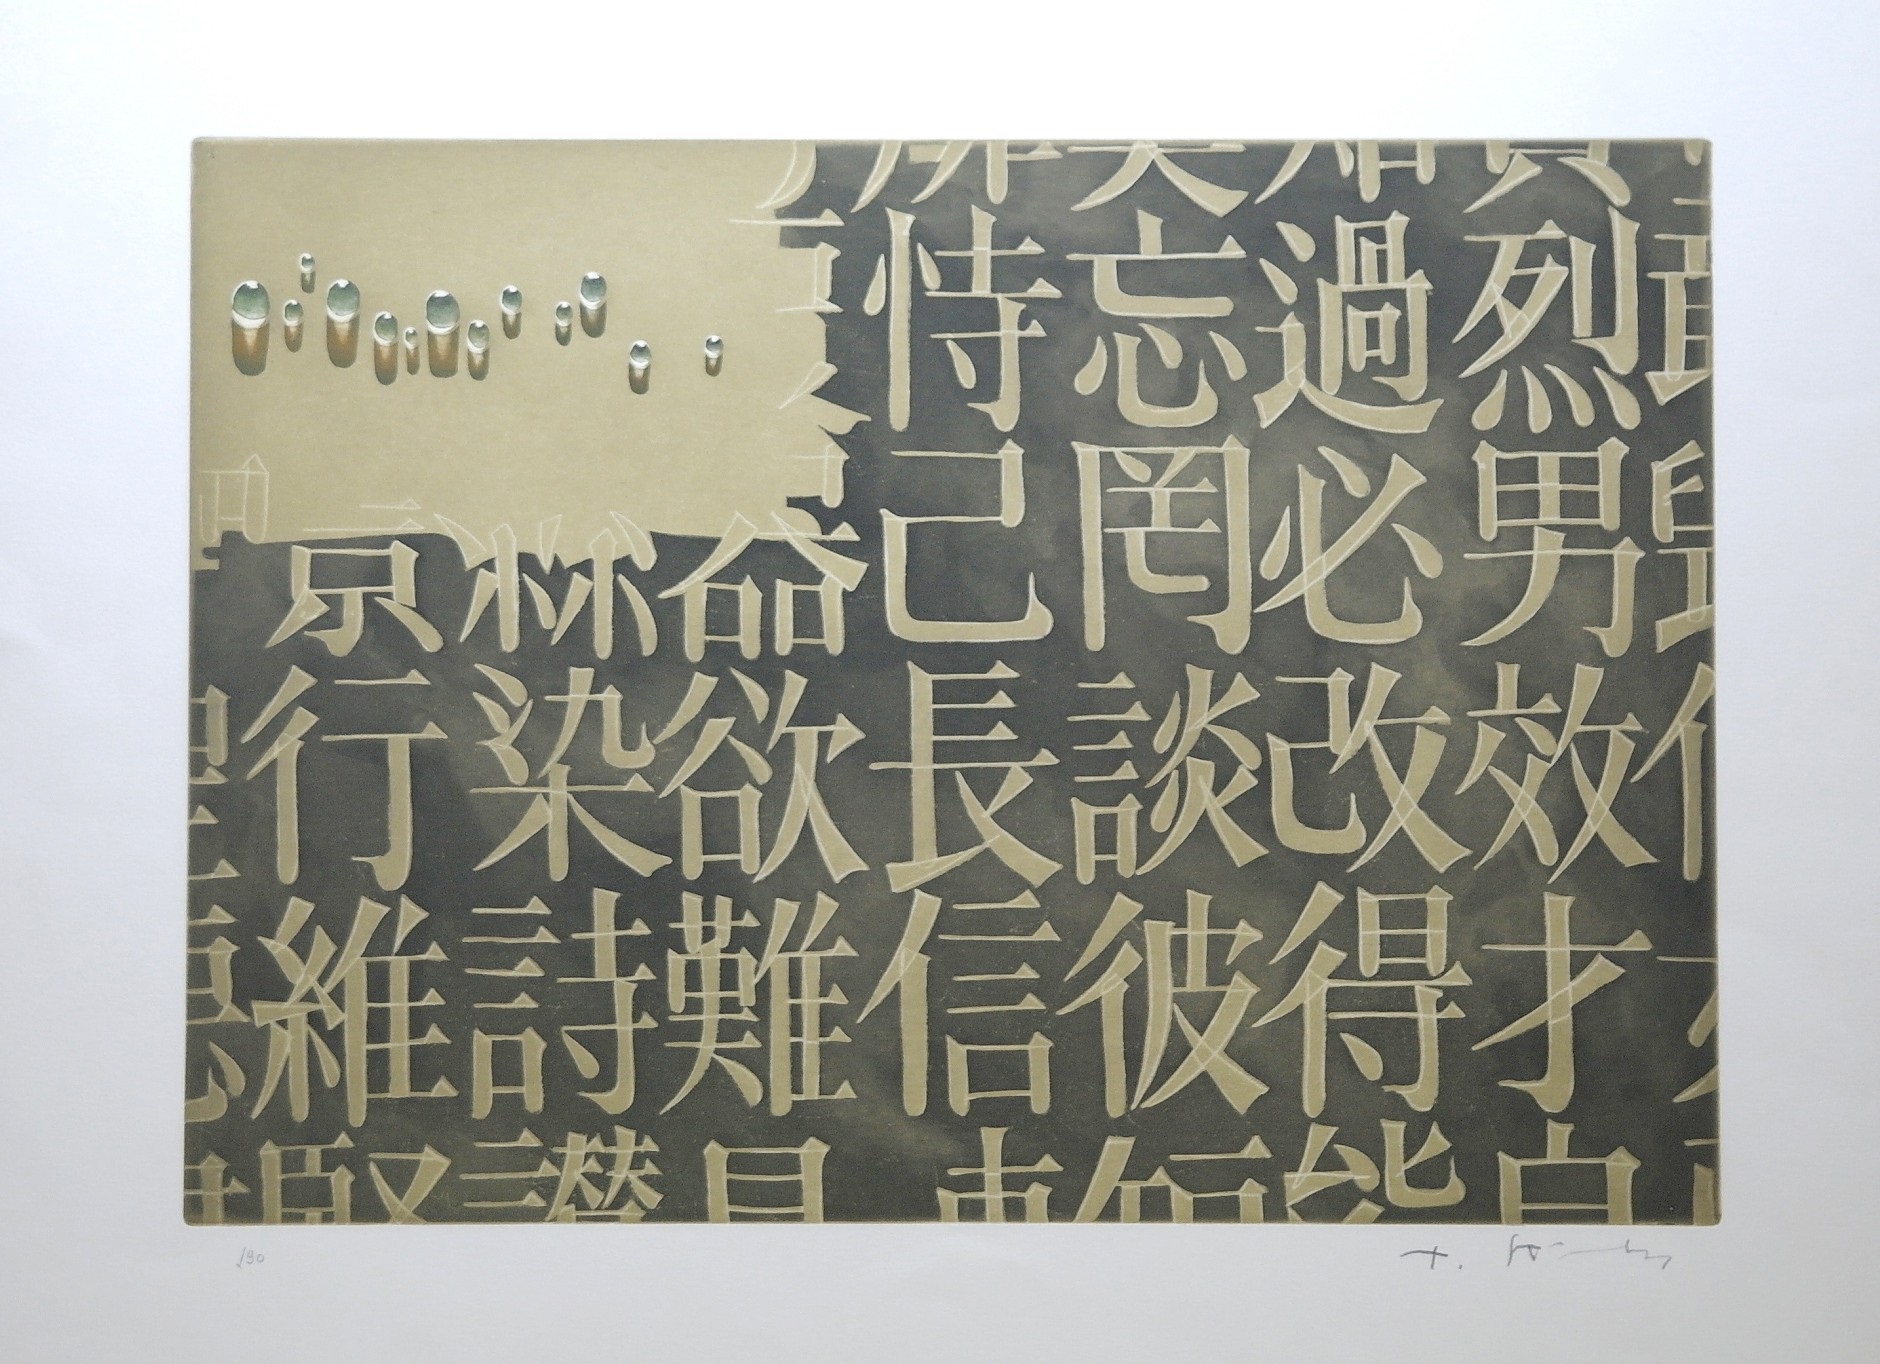 烈男效才
過必改得能
忘罔談彼
恃己長信
欲難
染詩讚
行維賢
/90